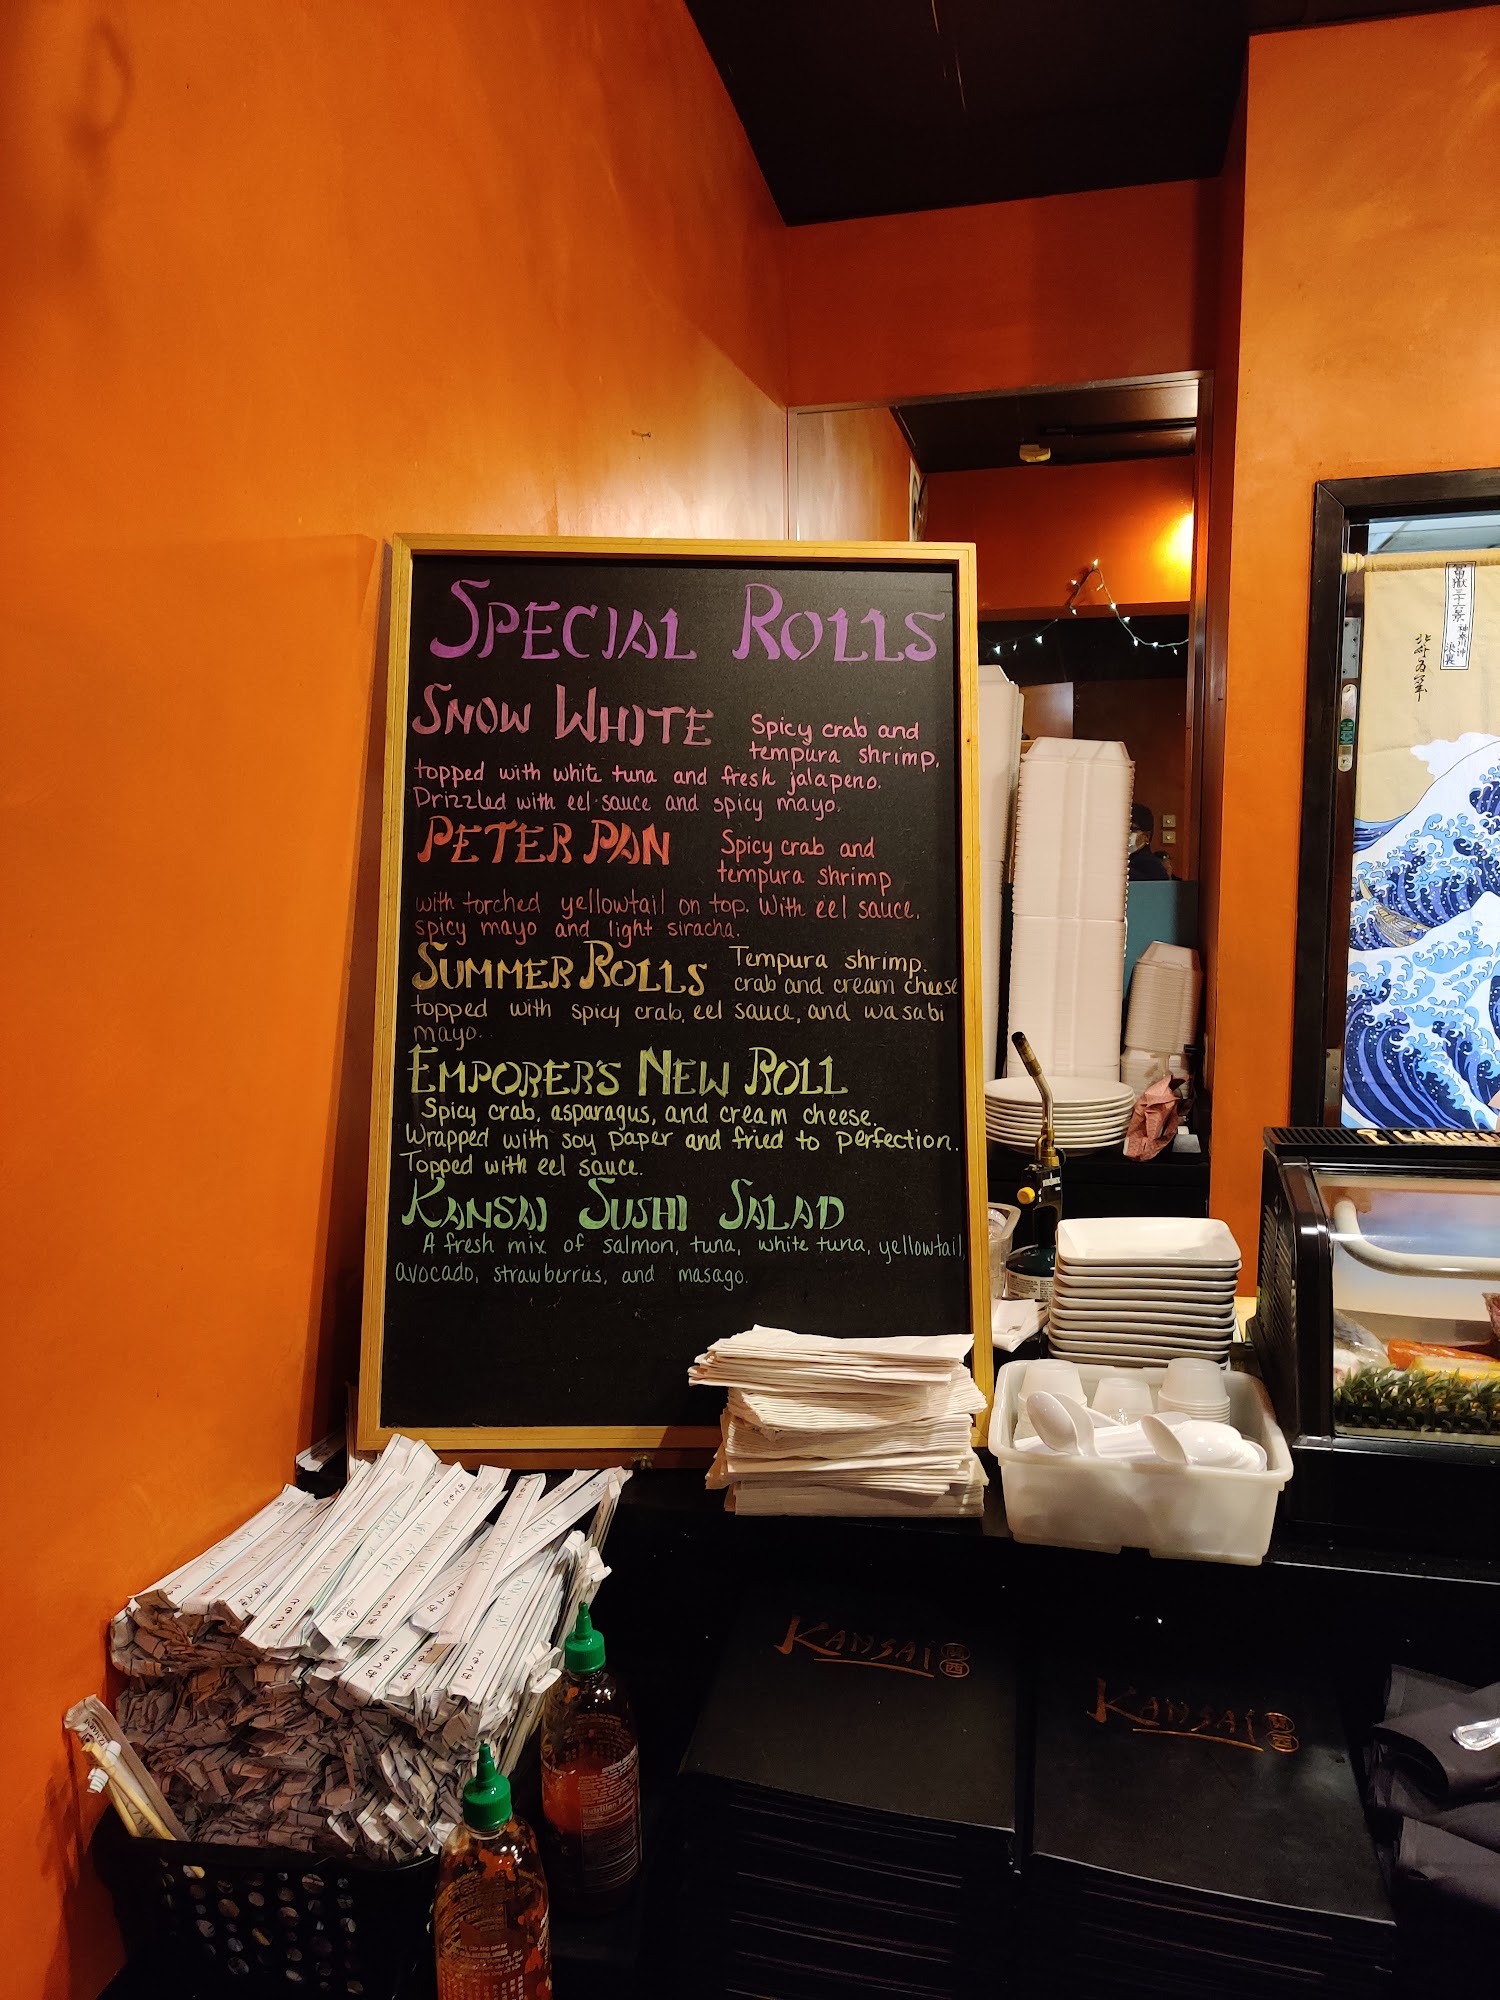 SPECIAL ROLLS
SNOW WHITE
Spicy crab and
tempura shrimp,
topped with white tuna and fresh jalapeno.
Drizzled with eel sauce and spicy mayo.
PETER PAN
Spicy crab and
tempura shrimp
with torched yellowtail on top. With eel sauce,
spicy mayo and light siracha.
SUMMER ROLLS
Tempura shrimp,
crab and cream cheese
topped with spicy crab, eel sauce, and wasabi
mayo.
EMPORER'S NEW ROLL
Spicy crab, asparagus, and cream cheese.
Wrapped with soy paper and fried to perfection.
Topped with eel sauce.
KANSAI SUSHI SALAD
A fresh mix of salmon, tuna, white tuna, yellowtail,
avocado, strawberries, and masago.
冨嶽三十六景
神奈川沖
浪裏
KANSAI 関西
KANSAI 関西